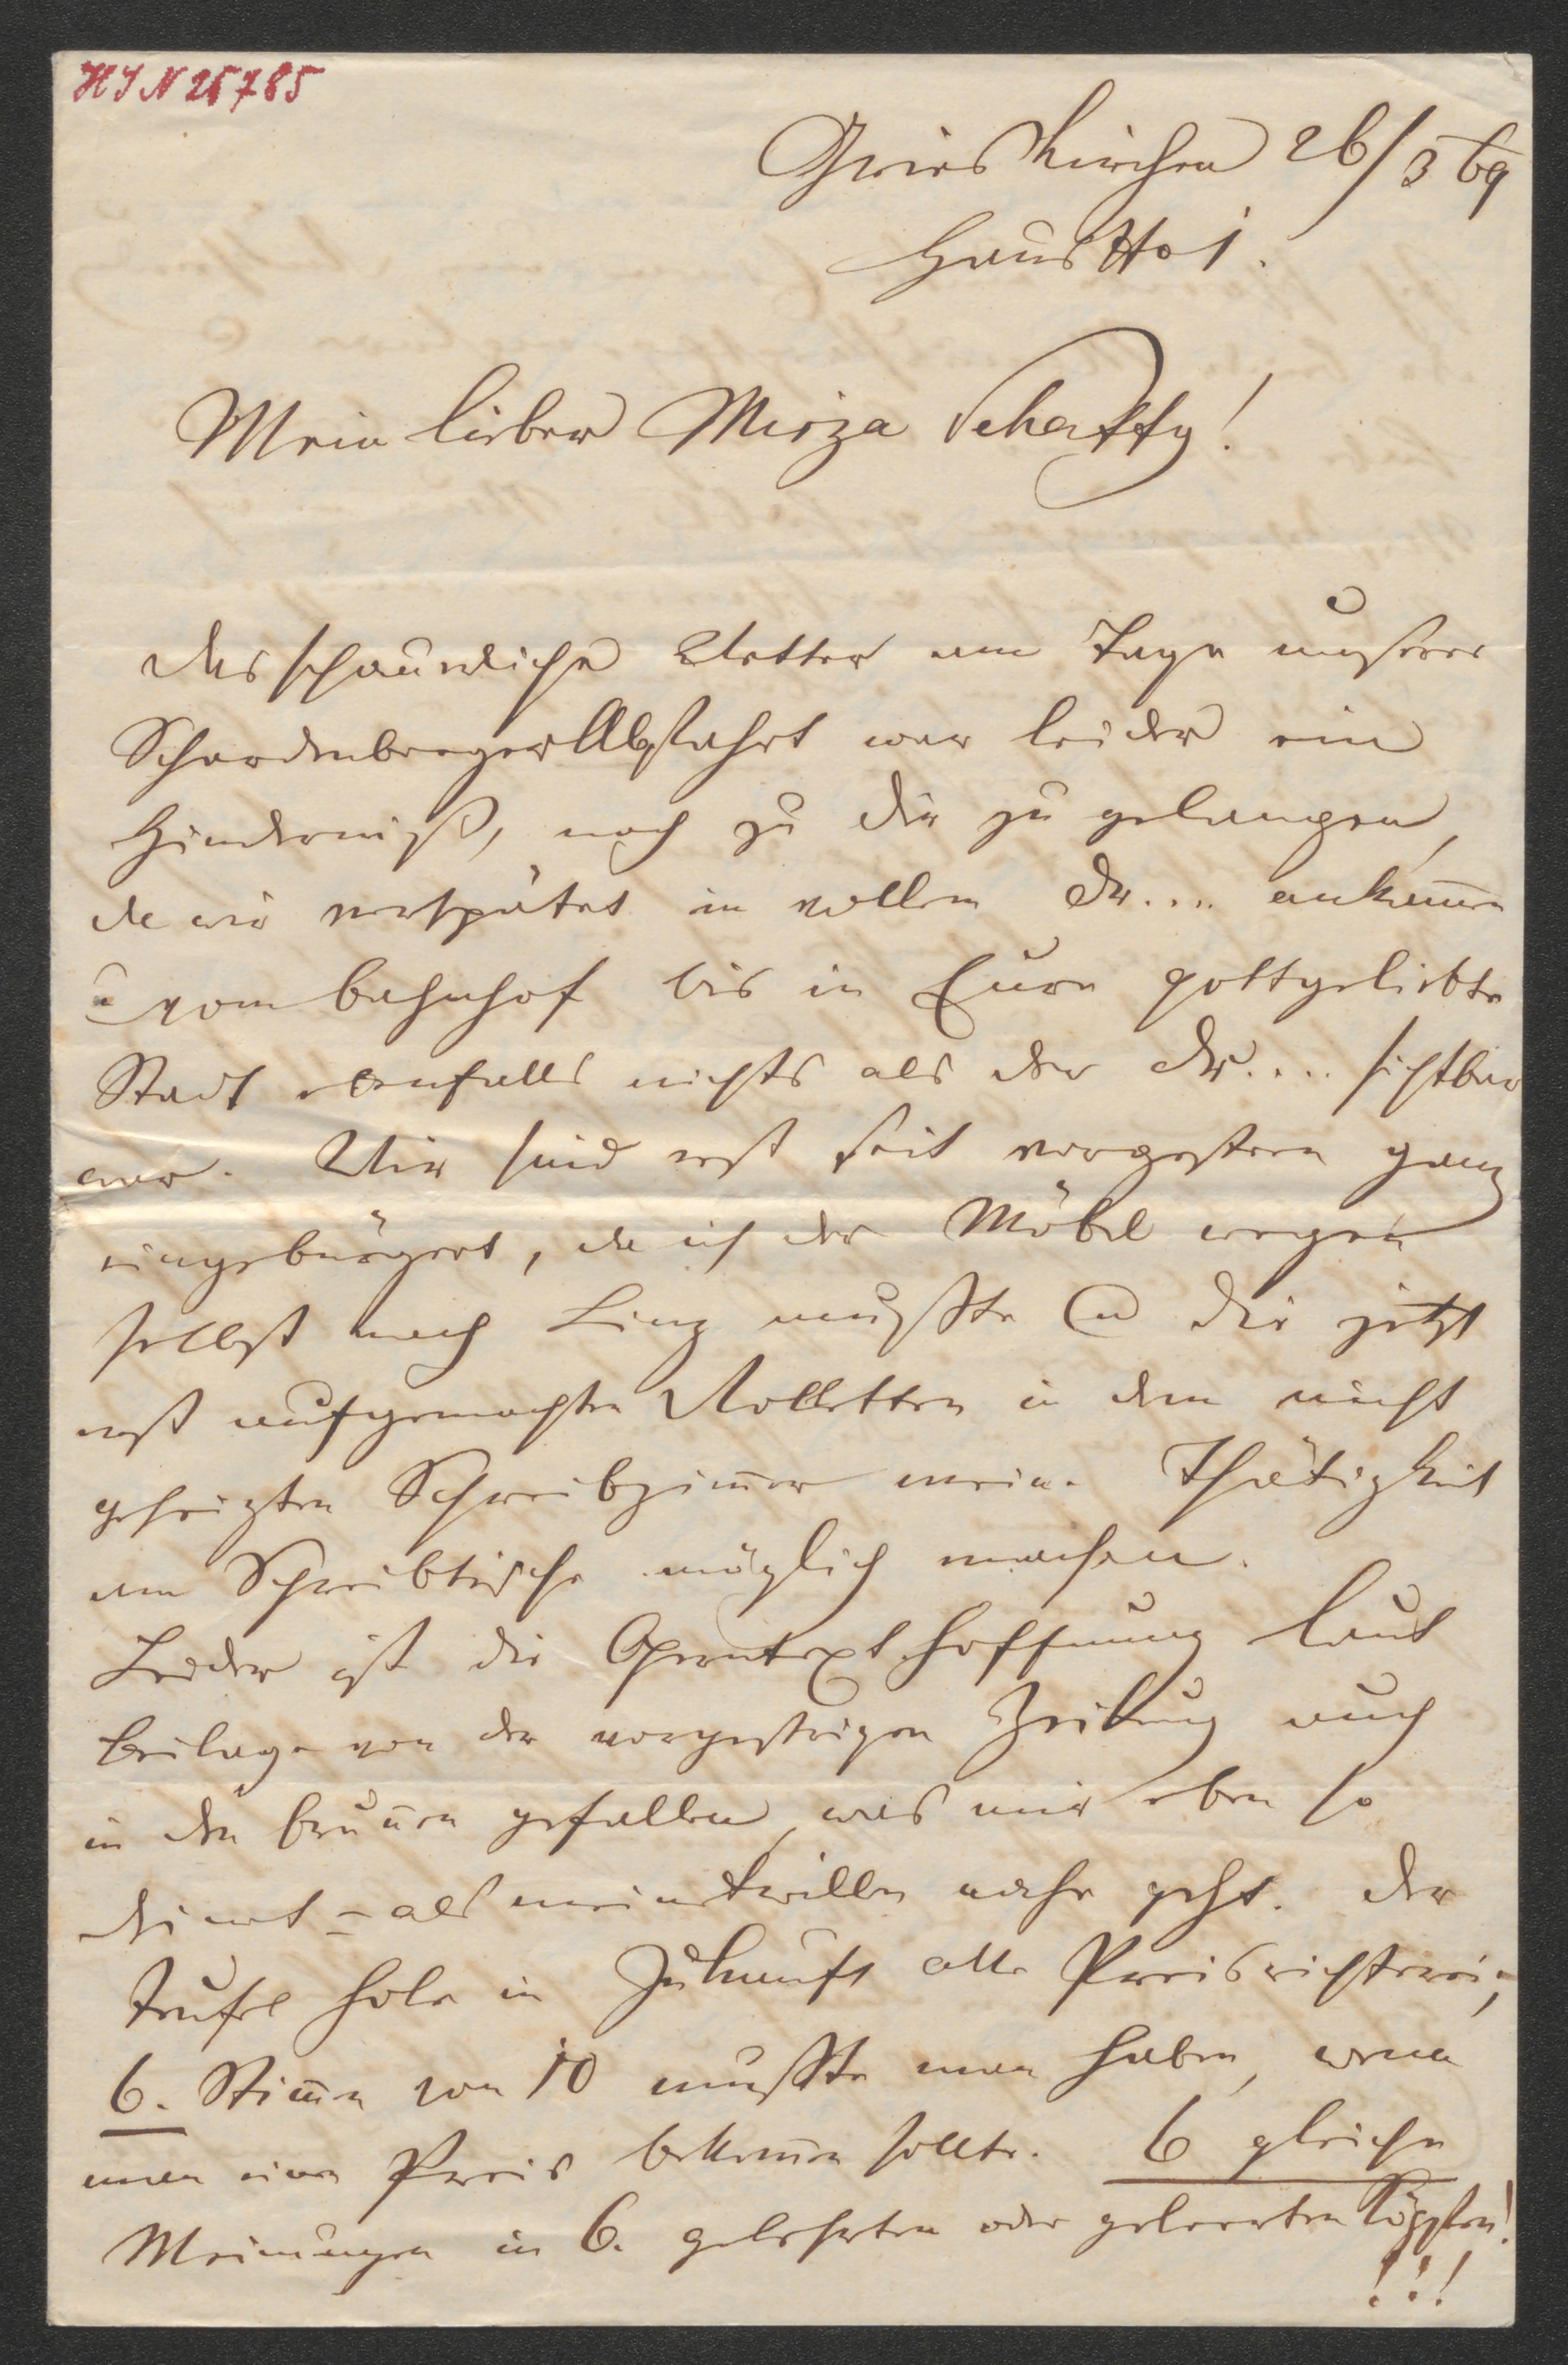 HIN 25785
Grieskirchen 26/3 69
Haus No 1.
Mein lieber Mirza Schaffy!
Das schauerliche Wetter am Tage unserer
Schardenberger Abfahrt war leider ein
Hinderniß, noch zu Dir zu gelangen,
da wir verspätet in vollem Dr.... ankamen
u vom Bahnhof bis in Eure gottgeliebte
Stadt ebenfalls nichts als der Dr.... sichtbar
war. Wir sind erst seit vorgestern ganz
eingebürgert, da ich der Möbel wegen
selbst nach Linz mußte u die jetzt
erst aufgemachten Rolletten in dem nicht
geheizten Schreibzimmer meine Thätigkeit
am Schreibtische möglich machen.
Leider ist die Operntexthoffnung laut
Beilage von der vorgestrigen Zeitung auch
in den Brunnen gefallen, was mir eben so
Deinet - als meinetwillen nahe geht. Der
Teufel hole in Zukunft alle Preisrichterei;
6. Stimmen von 10 mußte man haben, wenn
man einen Preis bekommen sollte. 6 gleiche
Meinungen in 6. gelehrten oder geleerten Köpfen!
!!!